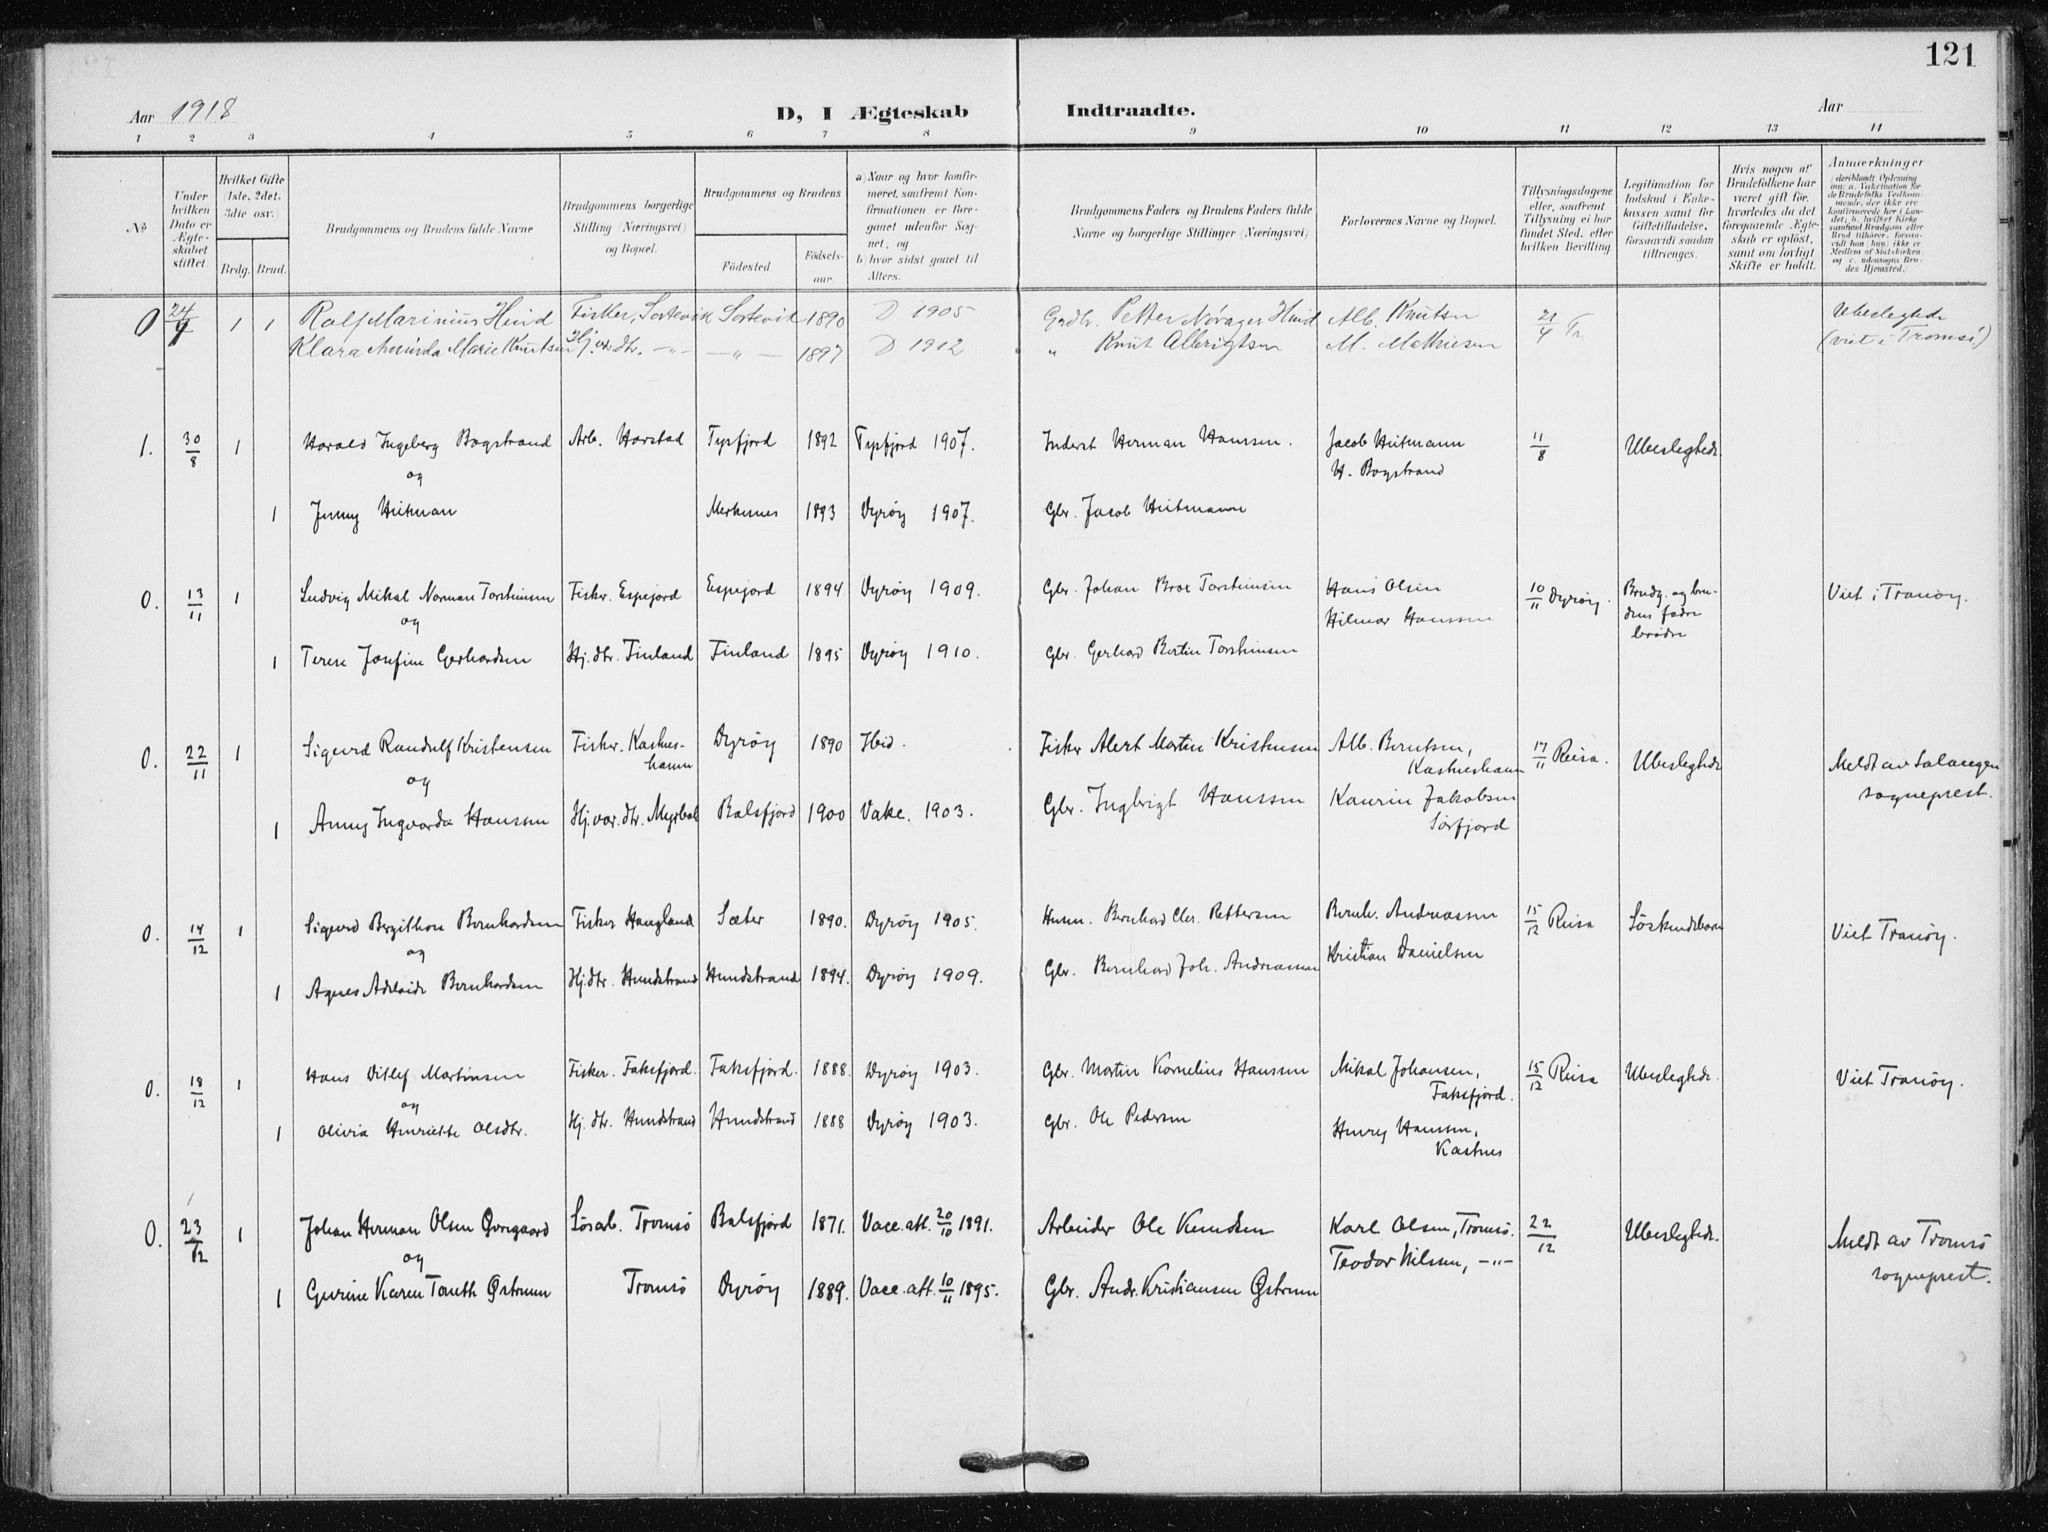 121
Aar 1918
D, I Ægteskab Indtraadte.
Aar
1 2 3 4 5 6 7 8 9 10 11 12 13 14
№
Under hvilken Dato er Ægteskabet stiftet.
Hvilket Gifte (1ste, 2det, 3die osv.)
Brdg. Brud.
Brudgommens og Brudens fulde Navne
Brudgommens borgerlige Stilling (Næringsvei) og Bopæl.
Brudgommens og Brudens
Fødested. Fødselsaar.
a) Naar og hvor konfirmeret, saafremt Konfirmationen er foregaaet udenfor Sognet, og
b) hvor sidst gaaet til Alters.
Brudgommens Faders og Brudens Faders fulde Navne og borgerlige Stillinger (Næringsvei)
Forlovernes Navne og Bopæl.
Tillysningsdagene eller, saafremt Tillysning ei har fundet Sted, efter hvilken Bevilling.
Legitimation for Indskud i Enkekassen samt for Giftetilladelse, forsaavidt saadan tiltrænges.
Hvis nogen af Brudefolkene har været gift før, hvorledes da det foregaaende Ægteskab er opløst, samt om lovligt Skifte er holdt.
Anmærkninger (deriblandt Oplysning om: a. Vakcination for de Brudefolks Vedkommende, der ikke ere konfirmerede her i Landet; b. hvilket Kirkesamfund Brudgom eller Brud tilhører, forsaavidt han (hun) ikke er Medlem af Statskirken, og c. udensogns Brudes Hjemsted.)
0 24/4 1 1 Rolf Marinius Hind Fisker, Sortevik Sortevik 1890 D 1905 Grdbr. Petter Nøvager Hind Alb. Knutsen 21/4 Tr. Ubeslegtede
Klara Aminda Marie Knutsen Hj.v. dtr. -"- -"- 1897 D 1912 " Knut Albrigtsen M. Mathiesen (viet i Tromsø)
1. 30/8 1 Harald Ingeberg Bogstrand Arb. Harstad Tysfjord 1892 Tysfjord 1907. Inderst Herman Hanssen. Jacob Heitmann 11/8 Ubeslegtede
og H. Bogstrand
1 Jenny Heitman 1893 Dyrøy 1907. Gbr. Jacob Heitmann
0. 13/11 1 Ludvig Mikal Norman Torsteinsen Fisker. Espejord Espejord 1894 Dyrøy 1909. Gbr. Johan Brox Torsteinsen Hans Olsen 10/11 Dyrøy. Brudg. og brudens fædre brødre Viet i Tranøy.
og Hilmar Hanssen
1 Terese Josefine Gerhardsen Hj. dtr. Finland Finland 1895 Dyrøy 1910. Gbr. Gerhard Bertin Torsteinsen
0. 22/11 1 Sigurd Randulf Kristensen Fisker. Kastneshamn Dyrøy 1890 Ibid. Fisker Alert Martin Kristensen Alb. Berntsen, Kastneshamn 17/11 Reisa. Ubeslegtede Meldt av Salangen sogneprest.
og
1 Anny Ingvarda Hanssen Hj.v. dtr. Balsfjord 1900 1903. Gbr. Ingbrigt Hanssen Kaurin Jakobsen Sørfjord
0. 14/12 1 Sigurd Bergithon Bernhardsen Fisker Haugland Sæter 1890. Dyrøy 1905. Husm. Bernhard Chr. Pettersen Bernh. Andreassen 15/12 Reisa Søskendebarn Viet Tranøy.
og Kristian Danielsen
1 Agnes Adelaide Bernhardsen Hj.dtr. Hundstrand Hundstrand 1894. Dyrøy 1909. Gbr. Bernhard Joh. Andreassen
0. 18/12 1 Hans Ditlef Martinsen Fisker. Faksfjord. Faksfjord. 1888. Dyrøy 1903. Gbr. Martin Kornelius Hanssen Mikal Johansen, Faksfjord. 15/12 Reisa Ubeslegtede. Viet Tranøy.
og
1 Olivia Henriette Olsdtr. Hj. dtr. Hundstrand Hundstrand 1888 Dyrøy 1903. Gbr. Ole Pedersen Henry Hanssen, Kastnes
0. 23/12 1 Johan Herman Olsen Øvregaard Løsarb. Tromsø Balsfjord 1871. Vacc. att. 20/10 1891. Arbeider Ole Knudsen Karl Olsen, Tromsø. 22/12 Ubeslegtede. Meldt av Tromsø sogneprest.
og Teodor Nilssen, -"-
1 Gurine Karen Østrum Tromsø Dyrøy 1889. Vacc. att. 10/11 1895. Gbr. Andr. Kristiansen Østrum